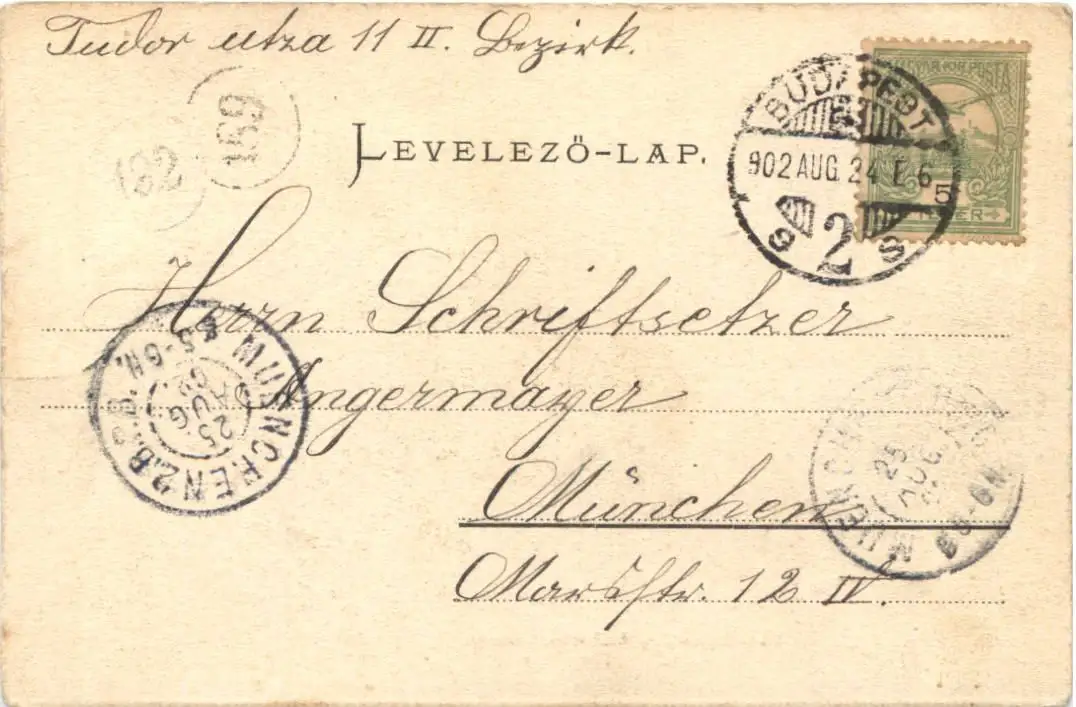 Tudor utza 11 II. Bezirk.
189
182
LEVELEZŐ-LAP.
MAGYAR KIR. POSTA
5
BUDAPEST
902 AUG. 24 E. 6
2
Herrn Schriftsetzer
Angermayer
München
Marsstr. 12 IV.
MUENCHEN 2. B. P.B.
5-6N.
25
AUG
02
MUENCH
25
AUG
5-6N.